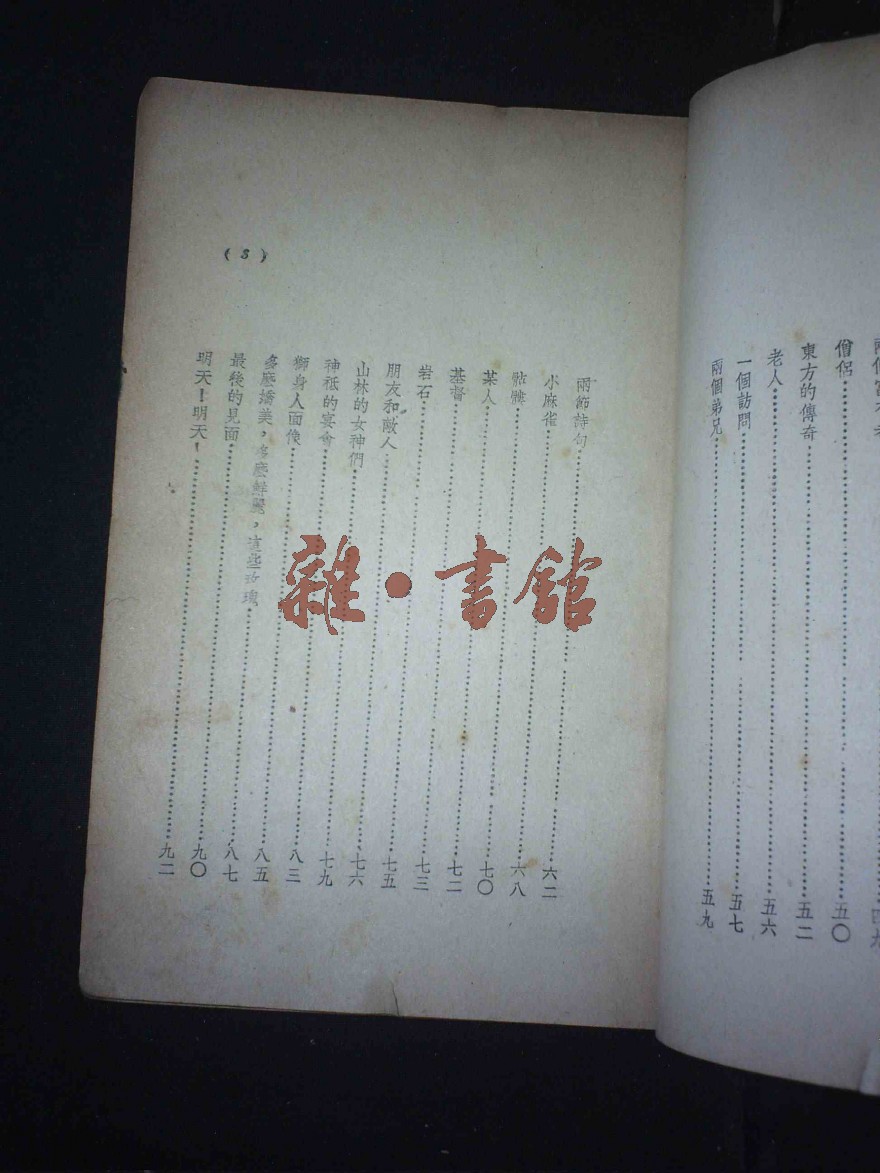 四九
僧侶 五〇
東方的傳奇 五二
老人 五六
一個訪問 五七
兩個弟兄 五九
(3)
兩節詩句 六二
小麻雀 六八
骷髏 七〇
某人 七二
基督 七三
岩石 七五
朋友和敵人 七六
山林的女神們 七九
神祇的宴會 八三
獅身人面像 八五
多麼嬌美，多麼鮮麗，這些玫瑰 八七
最後的見面 九〇
明天！明天！ 九二
雜·書館